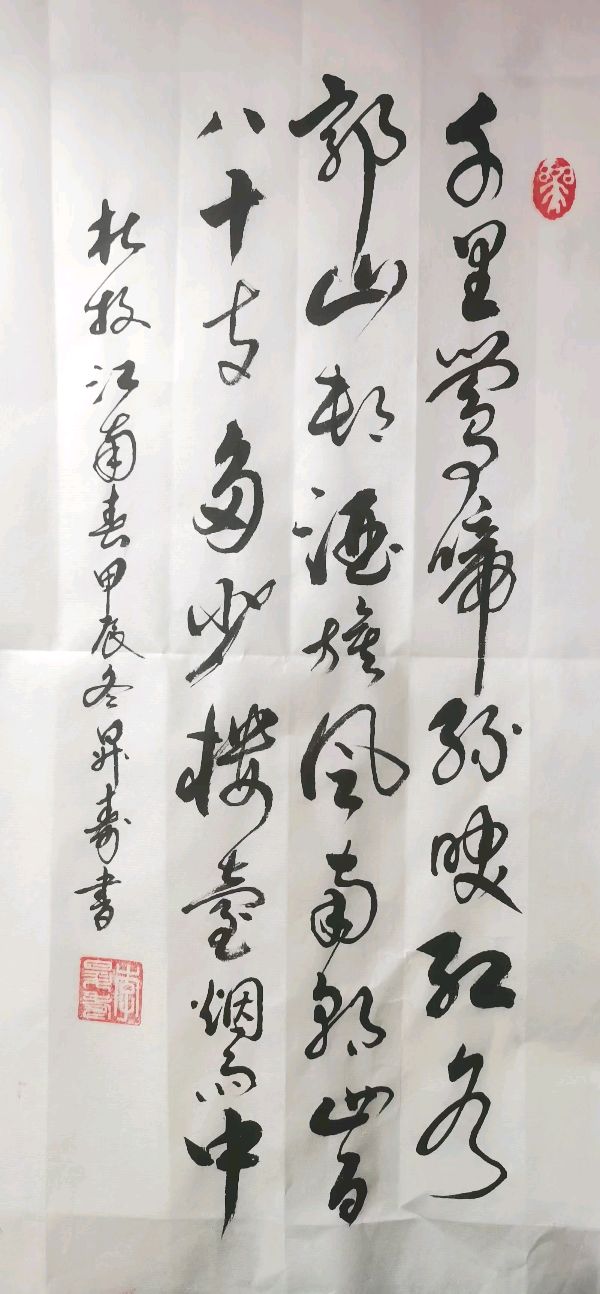 千里鶯啼綠映紅水
郭山村酒旗風南朝四百
八十寺多少樓臺烟雨中
杜牧江南春甲辰冬昇壽書
李昇壽